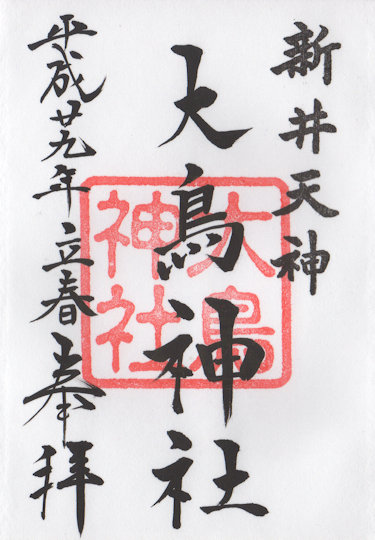 新井天神
大鳥神社
平成廿九年立春奉拝
大鳥
神社